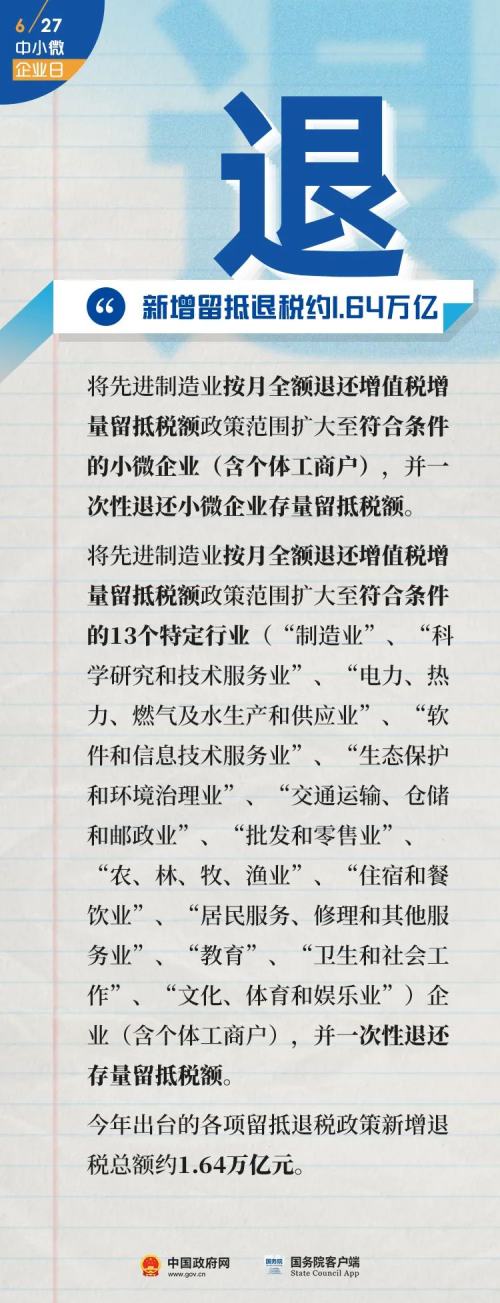 6/27
中小微
企业日
退
“ 新增留抵退税约1.64万亿
将先进制造业按月全额退还增值税增
量留抵税额政策范围扩大至符合条件
的小微企业（含个体工商户），并一
次性退还小微企业存量留抵税额。
将先进制造业按月全额退还增值税增
量留抵税额政策范围扩大至符合条件
的13个特定行业（“制造业”、“科
学研究和技术服务业”、“电力、热
力、燃气及水生产和供应业”、“软
件和信息技术服务业”、“生态保护
和环境治理业”、“交通运输、仓储
和邮政业”、“批发和零售业”、
“农、林、牧、渔业”、“住宿和餐
饮业”、“居民服务、修理和其他服
务业”、“教育”、“卫生和社会工
作”、“文化、体育和娱乐业”）企
业（含个体工商户），并一次性退还
存量留抵税额。
今年出台的各项留抵退税政策新增退
税总额约1.64万亿元。
中国政府网
www.gov.cn
国务院
国务院客户端
State Council App